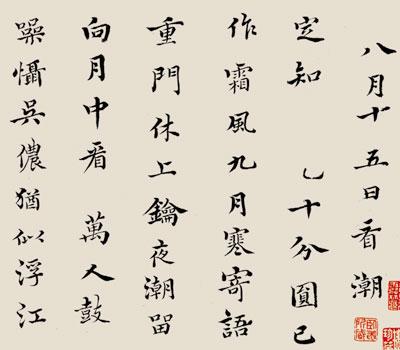 八月十五日看潮
定知 十分圓已
作霜風九月寒寄語
重門休上鑰夜潮留
向月中看 萬人鼓
噪懾吳儂猶似浮江